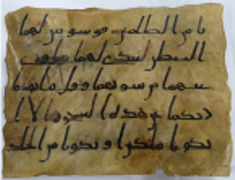 نا من الظلمين فوسوس لهما
الشيطن ليبدي لهما ما وري
عنهما من سوتهما وقل ما نهكما
ربكما عن هذه الشجره الا ا
ن تكونا ملكين او تكونا من الخلد